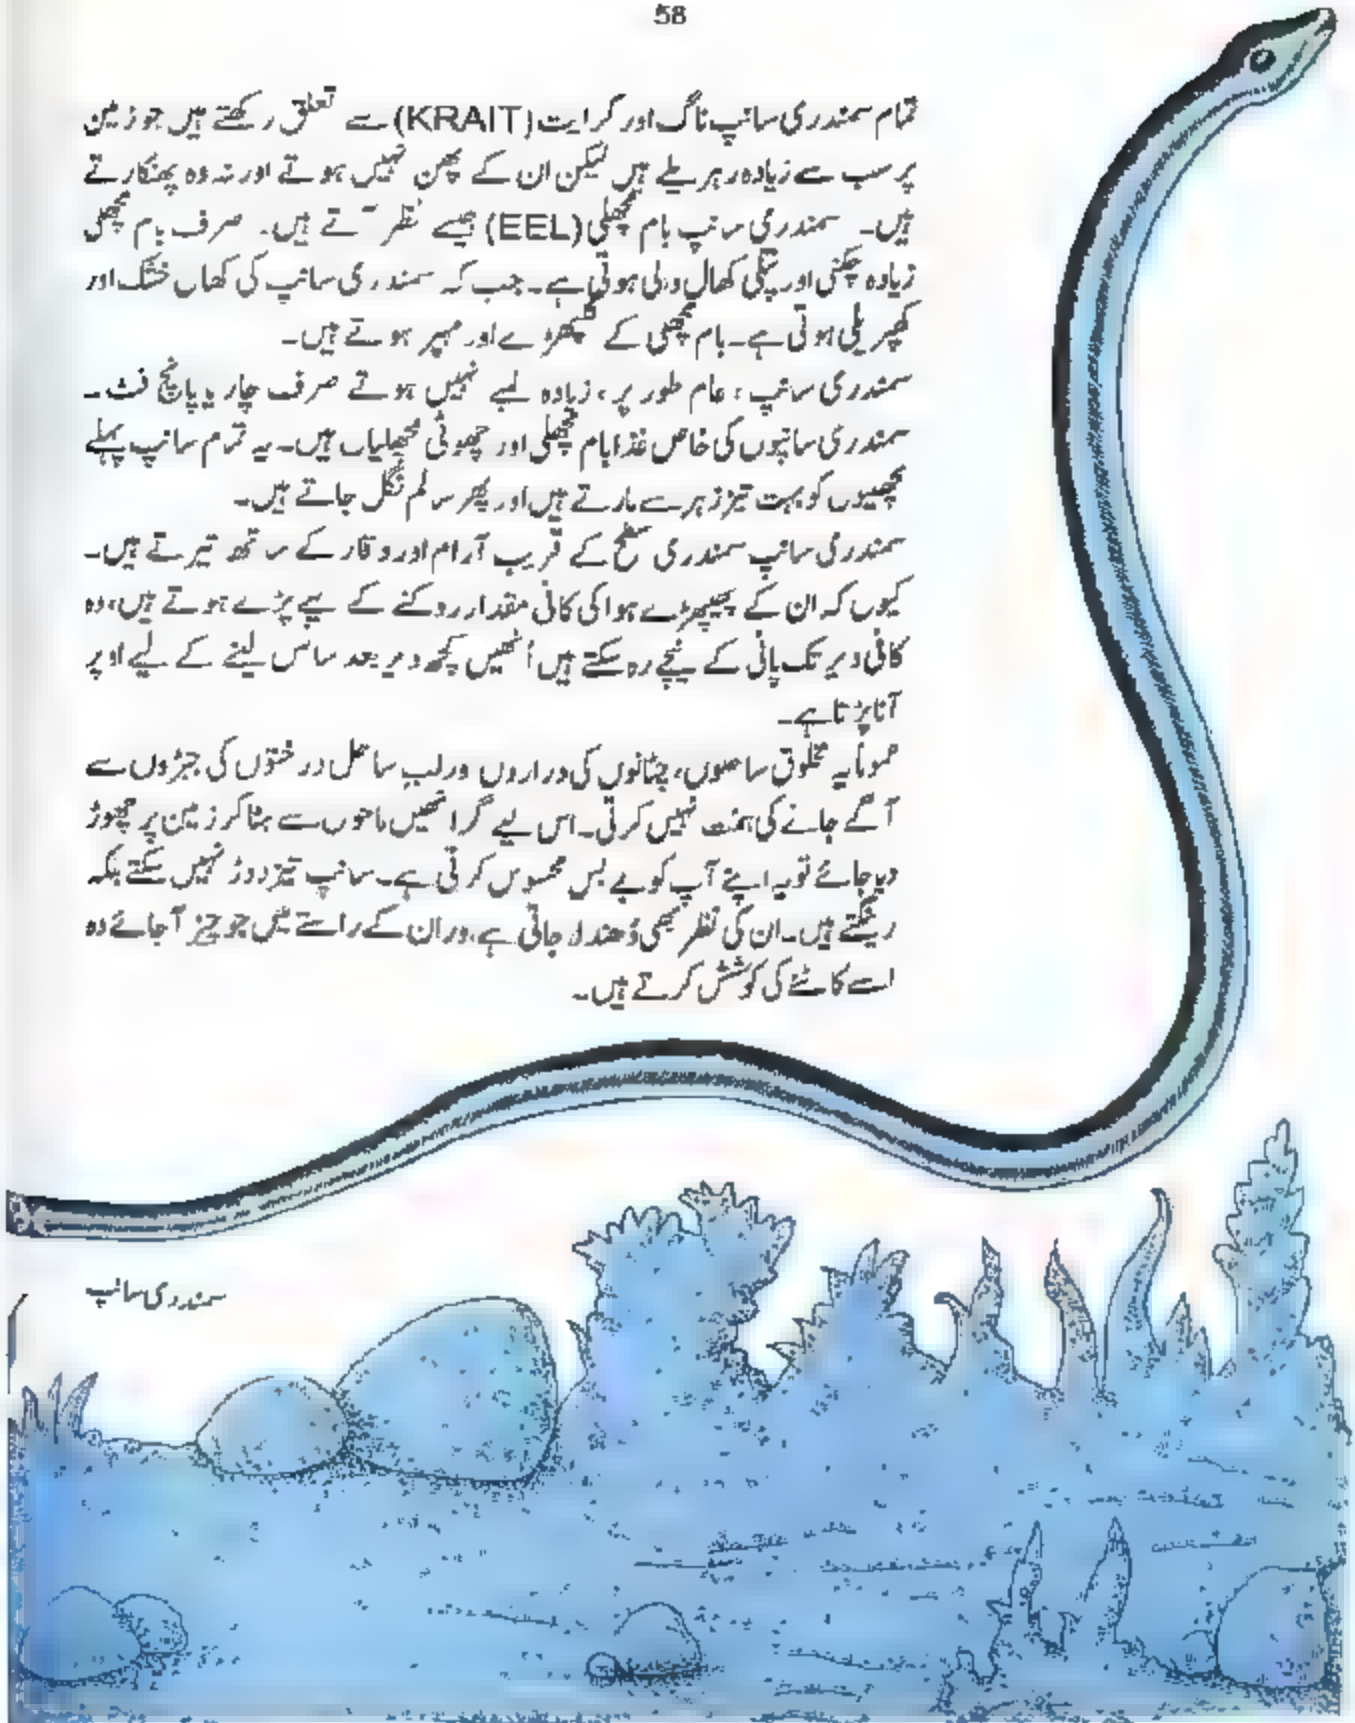 58
تمام سمندری سانپ ناگ اور کرایت (KRAIT) سے تعلق رکھتے ہیں جو زمین
پر سب سے زیادہ زہریلے ہیں لیکن ان کے پھن نہیں ہوتے اور نہ وہ پھنکارتے
ہیں۔ سمندری سانپ بام مچھلی (EEL) جیسے نظر آتے ہیں۔ صرف بام مچھلی
زیادہ چکنی اور پتلی کھال والی ہوتی ہے۔ جب کہ سمندری سانپ کی کھال خشک اور
کھپریلی ہوتی ہے۔ بام مچھلی کے گلپھڑے اور مہپر ہوتے ہیں۔
سمندری سانپ، عام طور پر، زیادہ لمبے نہیں ہوتے صرف چار یا پانچ فٹ۔
سمندری سانپوں کی خاص غذا بام مچھلی اور چھوٹی مچھلیاں ہیں۔ یہ تمام سانپ پہلے
مچھلیوں کو بہت تیز زہر سے مارتے ہیں اور پھر سالم نگل جاتے ہیں۔
سمندری سانپ سمندری سطح کے قریب آرام اور وقار کے ساتھ تیرتے ہیں۔
کیوں کہ ان کے پھیپھڑے ہوا کی کافی مقدار روکنے کے لیے بڑے ہوتے ہیں، وہ
کافی دیر تک پانی کے نیچے رہ سکتے ہیں اُنھیں کچھ دیر بعد سانس لینے کے لیے اوپر
آنا پڑتا ہے۔
عموماً یہ مخلوق ساحلوں، چٹانوں کی دراروں اور لب ساحل درختوں کی جڑوں سے
آگے جانے کی ہمّت نہیں کرتی۔ اس لیے گر انھیں ماحول سے ہٹا کر زمین پر چھوڑ
دیا جائے تو یہ اپنے آپ کو بے بس محسوس کرتی ہے۔ سانپ تیز دوڑ نہیں سکتے بلکہ
رینگتے ہیں۔ ان کی نظر بھی دُھندلا جاتی ہے، اور ان کے راستے میں جو چیز آ جائے وہ
اسے کاٹنے کی کوشش کرتے ہیں۔
سمندری سانپ